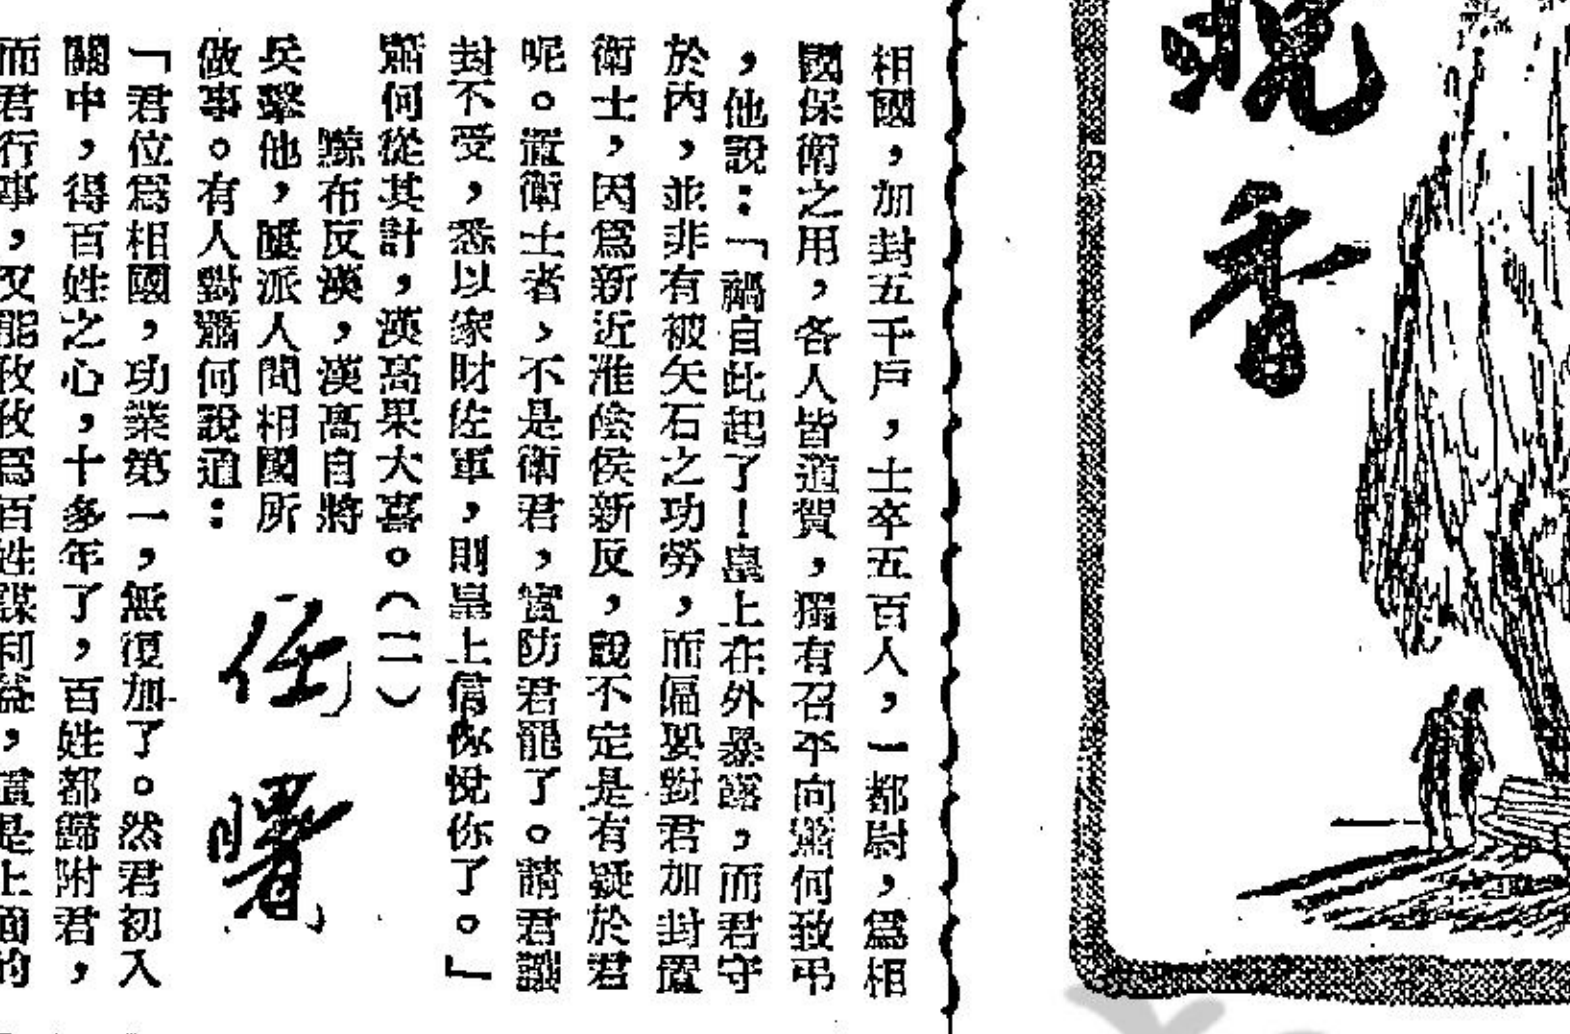 晚
香
相國，加封五千戶，士卒五百人，一都尉，爲相
國保衛之用，各人皆道賀，獨有召平向蕭何致弔
，他說：「禍自此起了！皇上在外暴露，而君守
於內，並非有被矢石之功勞，而偏要對君加封置
衛士，因爲新近淮陰侯新反，說不定是有疑於君
呢。置衛士者，不是衛君，實防君罷了。請君讓
封不受，悉以家財佐軍，則皇上信你悅你了。』
蕭何從其計，漢高果大喜。（二）
黥布反漢，漢高自將
兵擊他，屢派人問相國所
做事。有人對蕭何說道：
任
曙
「君位爲相國，功業第一，無復加了。然君初入
關中，得百姓之心，十多年了，百姓都歸附君，
而君行事，又能孜孜爲百姓謀利益，這是上面的